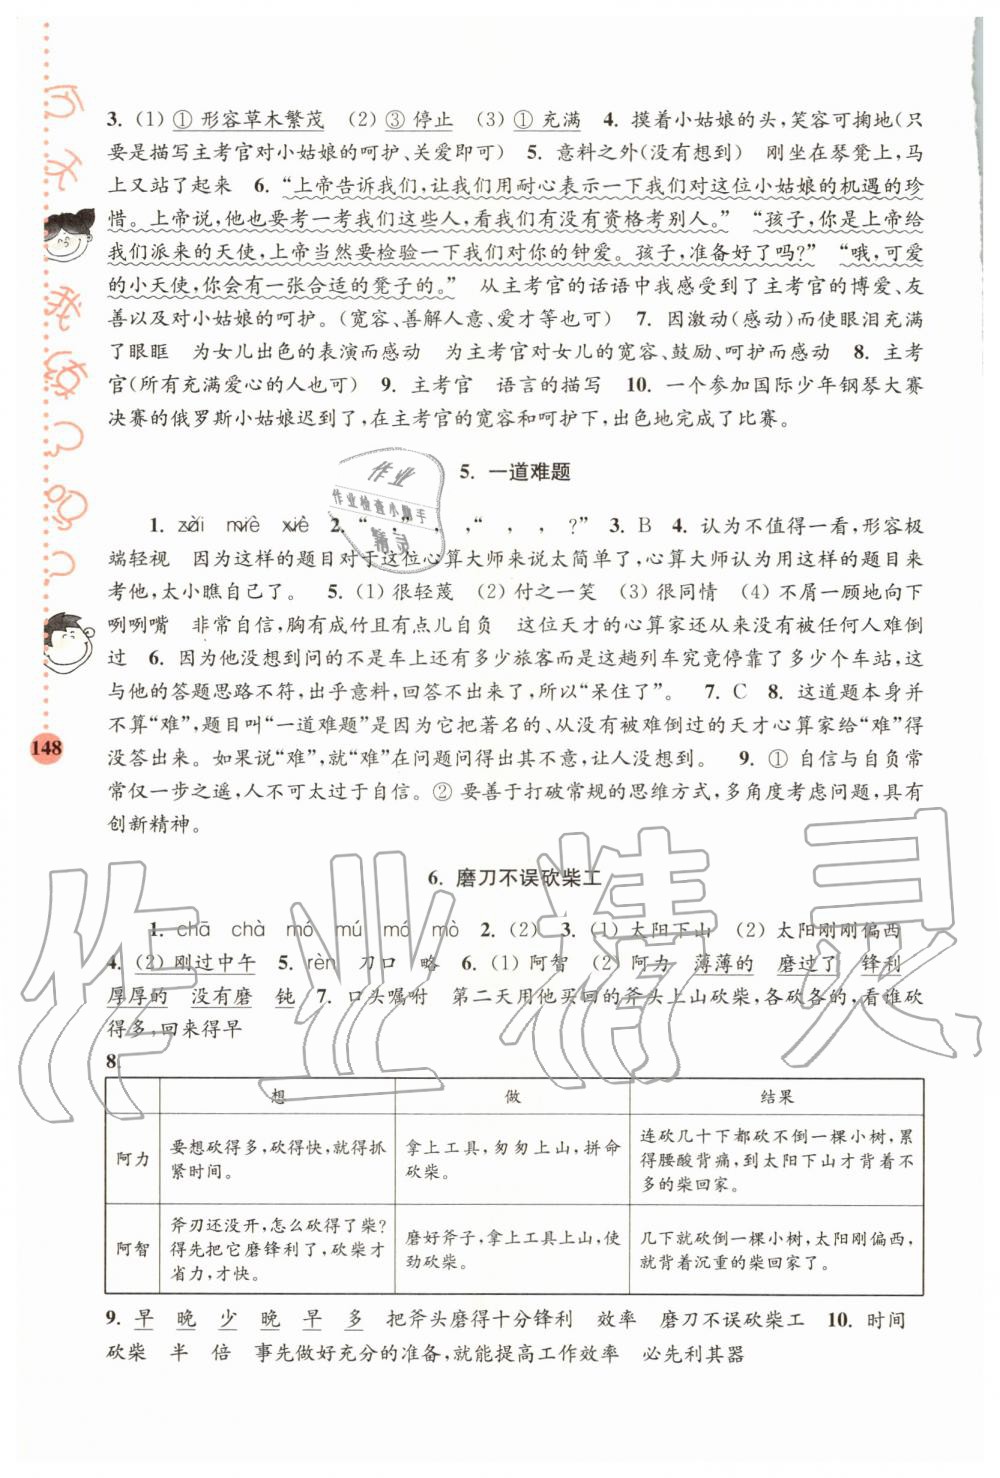 3. (1) ① 形容草木繁茂 (2) ③ 停止 (3) ① 充满 4. 摸着小姑娘的头,笑容可掬地(只
要是描写主考官对小姑娘的呵护、关爱即可) 5. 意料之外(没有想到) 刚坐在琴凳上,马
上又站了起来 6. “上帝告诉我们,让我们用耐心表示一下我们对这位小姑娘的机遇的珍
惜。上帝说,他也要考一考我们这些人,看我们有没有资格考别人。” “孩子,你是上帝给
我们派来的天使,上帝当然要检验一下我们对你的钟爱。孩子,准备好了吗?” “哦,可爱
的小天使,你会有一张合适的凳子的。” 从主考官的话语中我感受到了主考官的博爱、友
善以及对小姑娘的呵护。(宽容、善解人意、爱才等也可) 7. 因激动(感动)而使眼泪充满
了眼眶 为女儿出色的表演而感动 为主考官对女儿的宽容、鼓励、呵护而感动 8. 主考
官(所有充满爱心的人也可) 9. 主考官 语言的描写 10. 一个参加国际少年钢琴大赛
决赛的俄罗斯小姑娘迟到了,在主考官的宽容和呵护下,出色地完成了比赛。
5. 一道难题
1. zài miè xiè 2. “ , ” , ,“ , , ?” 3. B 4. 认为不值得一看,形容极
端轻视 因为这样的题目对于这位心算大师来说太简单了,心算大师认为用这样的题目来
考他,太小瞧自己了。 5. (1) 很轻蔑 (2) 付之一笑 (3) 很同情 (4) 不屑一顾地向下
咧咧嘴 非常自信,胸有成竹且有点儿自负 这位天才的心算家还从来没有被任何人难倒
过 6. 因为他没想到问的不是车上还有多少旅客而是这趟列车究竟停靠了多少个车站,这
与他的答题思路不符,出乎意料,回答不出来,所以“呆住了”。 7. C 8. 这道题本身并
不算“难”,题目叫“一道难题”是因为它把著名的、从没有被难倒过的天才心算家给“难”得
没答出来。如果说“难”,就“难”在问题问得出其不意,让人没想到。 9. ① 自信与自负常
常仅一步之遥,人不可太过于自信。② 要善于打破常规的思维方式,多角度考虑问题,具有
创新精神。
6. 磨刀不误砍柴工
1. chā chà mó mú mó mò 2. (2) 3. (1) 太阳下山 (2) 太阳刚刚偏西
4. (2) 刚过中午 5. rèn 刀口 略 6. (1) 阿智 (2) 阿力 薄薄的 磨过了 锋利
厚厚的 没有磨 钝 7. 口头嘱咐 第二天用他买回的斧头上山砍柴,各砍各的,看谁砍
得多,回来得早
8.
想 做 结果
阿力 要想砍得多,砍得快,就得抓紧时间。 拿上工具,匆匆上山,拼命砍柴。 连砍几十下都砍不倒一棵小树,累得腰酸背痛,到太阳下山才背着不多的柴回家。
阿智 斧刃还没开,怎么砍得了柴?得先把它磨锋利了,砍柴才省力,才快。 磨好斧子,拿上工具上山,使劲砍柴。 几下就砍倒一棵小树,太阳刚偏西,就背着沉重的柴回家了。
9. 早 晚 少 晚 早 多 把斧头磨得十分锋利 效率 磨刀不误砍柴工 10. 时间
砍柴 半 倍 事先做好充分的准备,就能提高工作效率 必先利其器
148
作业
作业检查小助手
精灵
作业精灵